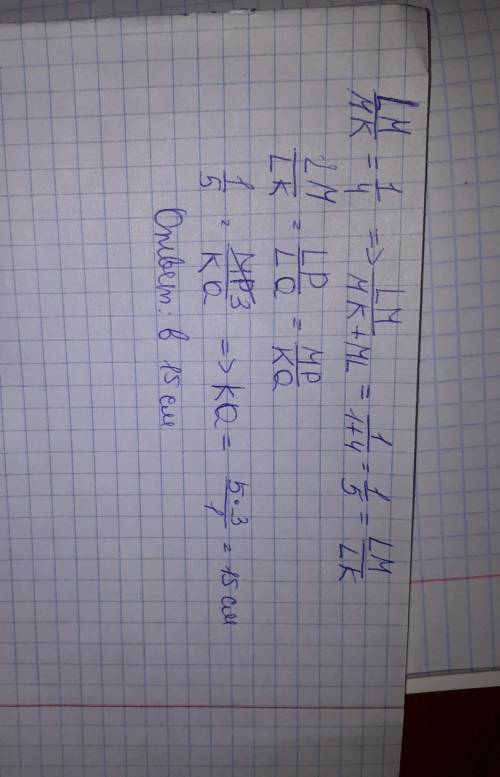 LM/MK = 1/4 => LM/MK+ML = 1/1+4 = 1/5 = LM/LK
LM/LK = LP/LQ = MP/KQ
1/5 = MP3/KQ => KQ = 5·3/1 = 15 см
Ответ: в 15 см